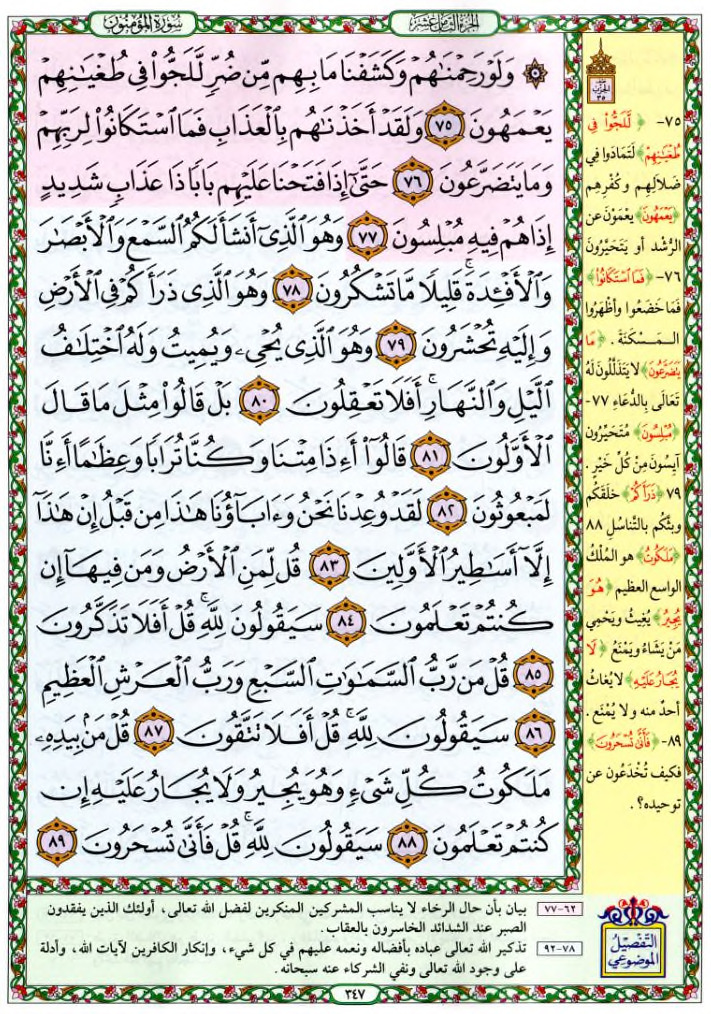 سورة المؤمنون
الجزء الثامن عشر
۞ وَلَوْ رَحِمْنَٰهُمْ وَكَشَفْنَا مَا بِهِم مِّن ضُرٍّ لَّلَجُّوا۟ فِى طُغْيَٰنِهِمْ
يَعْمَهُونَ ٧٥ وَلَقَدْ أَخَذْنَٰهُم بِٱلْعَذَابِ فَمَا ٱسْتَكَانُوا۟ لِرَبِّهِمْ
وَمَا يَتَضَرَّعُونَ ٧٦ حَتَّىٰٓ إِذَا فَتَحْنَا عَلَيْهِم بَابًا ذَا عَذَابٍ شَدِيدٍ
إِذَا هُمْ فِيهِ مُبْلِسُونَ ٧٧ وَهُوَ ٱلَّذِىٓ أَنشَأَ لَكُمُ ٱلسَّمْعَ وَٱلْأَبْصَٰرَ
وَٱلْأَفْـِٔدَةَ ۚ قَلِيلًا مَّا تَشْكُرُونَ ٧٨ وَهُوَ ٱلَّذِى ذَرَأَكُمْ فِى ٱلْأَرْضِ
وَإِلَيْهِ تُحْشَرُونَ ٧٩ وَهُوَ ٱلَّذِى يُحْىِۦ وَيُمِيتُ وَلَهُ ٱخْتِلَٰفُ
ٱلَّيْلِ وَٱلنَّهَارِ ۚ أَفَلَا تَعْقِلُونَ ٨٠ بَلْ قَالُوا۟ مِثْلَ مَا قَالَ
ٱلْأَوَّلُونَ ٨١ قَالُوٓا۟ أَءِذَا مِتْنَا وَكُنَّا تُرَابًا وَعِظَٰمًا أَءِنَّا
لَمَبْعُوثُونَ ٨٢ لَقَدْ وُعِدْنَا نَحْنُ وَءَابَآؤُنَا هَٰذَا مِن قَبْلُ إِنْ هَٰذَآ
إِلَّآ أَسَٰطِيرُ ٱلْأَوَّلِينَ ٨٣ قُل لِّمَنِ ٱلْأَرْضُ وَمَن فِيهَآ إِن
كُنتُمْ تَعْلَمُونَ ٨٤ سَيَقُولُونَ لِلَّهِ ۚ قُلْ أَفَلَا تَذَكَّرُونَ
٨٥ قُلْ مَن رَّبُّ ٱلسَّمَٰوَٰتِ ٱلسَّبْعِ وَرَبُّ ٱلْعَرْشِ ٱلْعَظِيمِ
٨٦ سَيَقُولُونَ لِلَّهِ ۚ قُلْ أَفَلَا تَتَّقُونَ ٨٧ قُلْ مَنۢ بِيَدِهِۦ
مَلَكُوتُ كُلِّ شَىْءٍ وَهُوَ يُجِيرُ وَلَا يُجَارُ عَلَيْهِ إِن
كُنتُمْ تَعْلَمُونَ ٨٨ سَيَقُولُونَ لِلَّهِ ۚ قُلْ فَأَنَّىٰ تُسْحَرُونَ ٨٩
الحزب
٣٥
٧٥- ﴿لَّلَجُّوا۟ فِى
طُغْيَٰنِهِمْ﴾ لَتَمَادَوا في
ضَلالِهم وكُفْرِهم
﴿يَعْمَهُونَ﴾ يَعْمَوْنَ عن
الرُّشْد أو يَتَحَيَّرُونَ
٧٦- ﴿فَمَا ٱسْتَكَانُوا۟﴾
فَمَا خَضَعُوا وأَظْهَرُوا
المَسْكَنَةَ. ﴿مَا
يَتَضَرَّعُونَ﴾ لا يَتَذَلَّلُونَ لَهُ
تَعَالَى بِالدُّعَاءِ ٧٧-
﴿مُبْلِسُونَ﴾ مُتَحَيِّرُون
آيِسُونَ مِنْ كُلِّ خَيْرٍ.
٧٩ ﴿ذَرَأَكُمْ﴾ خَلَقَكُم
وبثَّكُم بالتَّناسُلِ ٨٨
﴿مَلَكُوتُ﴾ هو المُلْكُ
الواسع العظيم ﴿هُوَ
يُجِيرُ﴾ يُغِيثُ ويَحْمِي
مَنْ يَشَاءُ ويَمْنَعُ ﴿لَا
يُجَارُ عَلَيْهِ﴾ لا يُغاثُ
أحدٌ منه ولا يُمْنَع.
٨٩- ﴿فَأَنَّىٰ تُسْحَرُونَ﴾
فكيف تُخْدَعُون عن
توحيده؟.
التفصيل
الموضوعي
٦٢-٧٧ بيان بأن حال الرخاء لا يناسب المشركين المنكرين لفضل الله تعالى، أولئك الذين يفقدون
الصبر عند الشدائد الخاسرون بالعقاب.
٧٨-٩٢ تذكير الله تعالى عباده بأفضاله ونعمه عليهم في كل شيء، وإنكار الكافرين لآيات الله، وأدلة
على وجود الله تعالى ونفي الشركاء عنه سبحانه.
٣٤٧